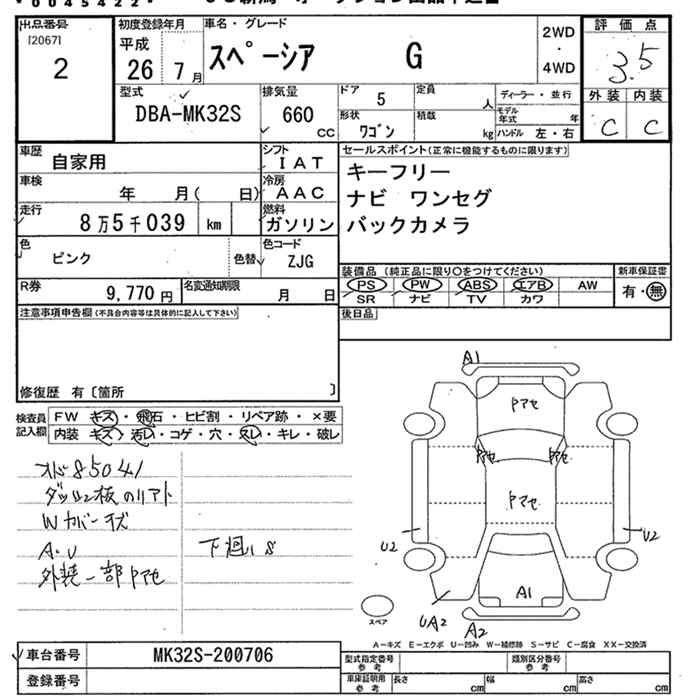 出品番号
[2067]
2
初度登録年月
平成
26 7月
車名・グレード
スペーシア G
2WD
・
4WD
評価点
3.5
外装 内装
C C
型式
DBA-MK32S
排気量
660
cc
ドア 5
形状
ワゴン
定員
人
積載
kg
ディーラー・並行
モデル年式 年
ハンドル 左・右
車歴
自家用
シフト
IAT
車検
年 月( 日)
冷房
AAC
走行
8万5千039 km
燃料
ガソリン
色
ピンク
色替
色コード
ZJG
R券
9,770円
名変通知期限
月 日
セールスポイント(正常に機能するものに限ります)
キーフリー
ナビ ワンセグ
バックカメラ
装備品 (純正品に限り○をつけてください)
PS PW ABS エアB AW
SR ナビ TV カワ
新車保証書
有・無
後日品
注意事項申告欄(不具合内容等は具体的に記入して下さい)
修復歴 有〔箇所 〕
検査員
記入欄
FW キズ・飛石・ヒビ割・リペア跡・×要
内装 キズ・汚れ・コゲ・穴・スレ・キレ・破レ
85041
Wカバーキズ
A.U
外装一部Pマセ
下廻りS
A1
Pマセ
Pマセ
Pマセ
Pマセ
U2
U2
A1
UA2
A2
スペア
A-キズ E-エクボ U-凹み W-補修跡 S-サビ C-腐食 XX-交換済
車台番号
MK32S-200706
登録番号
型式指定番号
参考
類別区分番号
参考
車庫証明用
参考
長さ cm
幅 cm
高さ cm